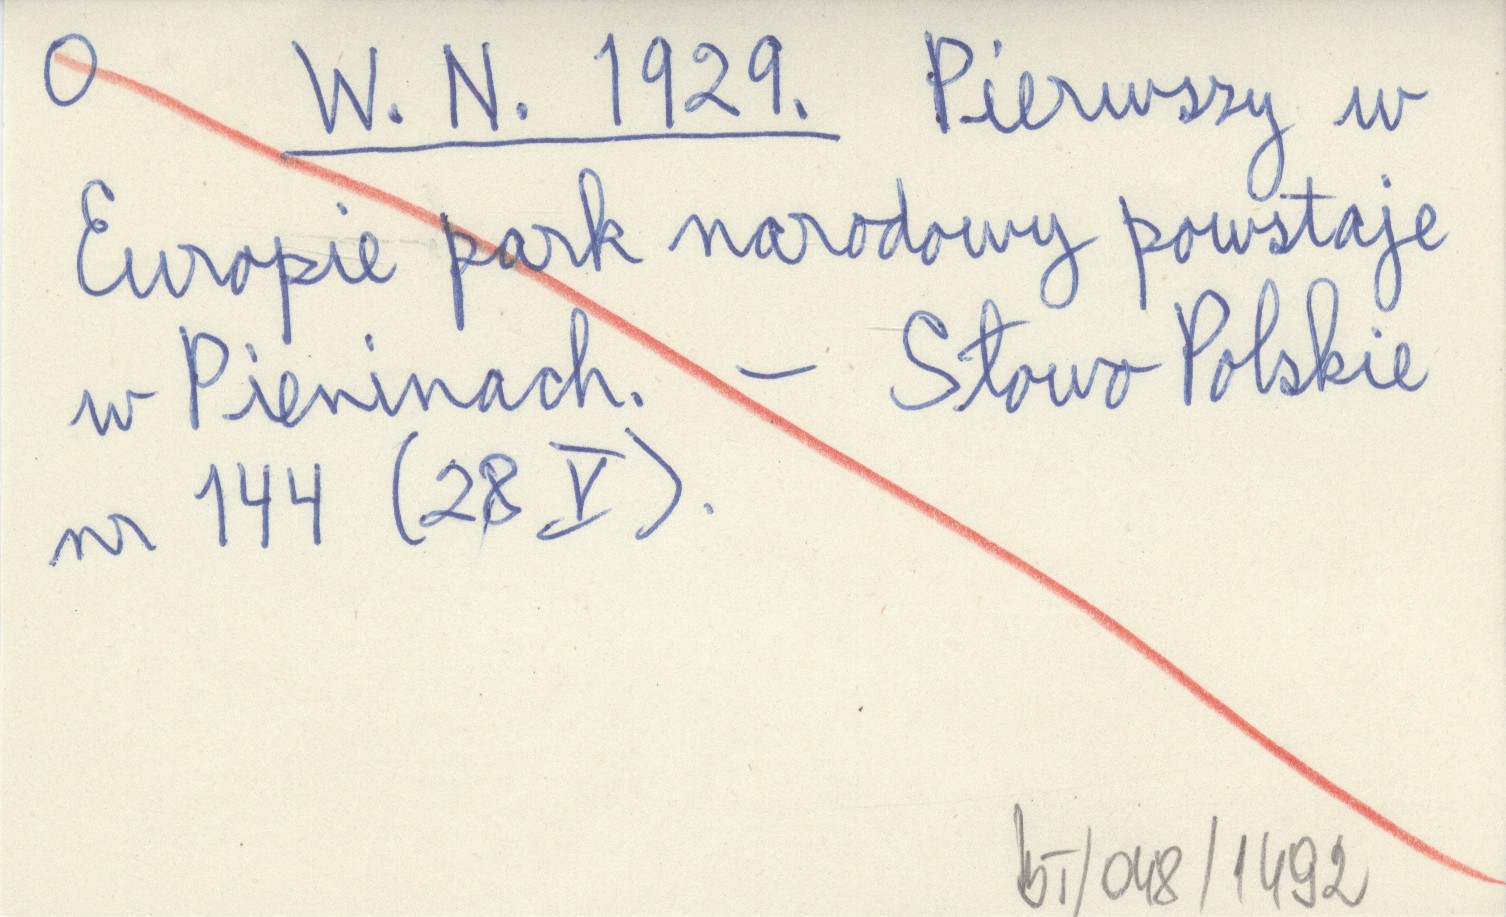 O W. N. 1929. Pierwszy w
Europie park narodowy powstaje
w Pieninach. — Słowo Polskie
nr 144 (28 V).
bI/048/1492